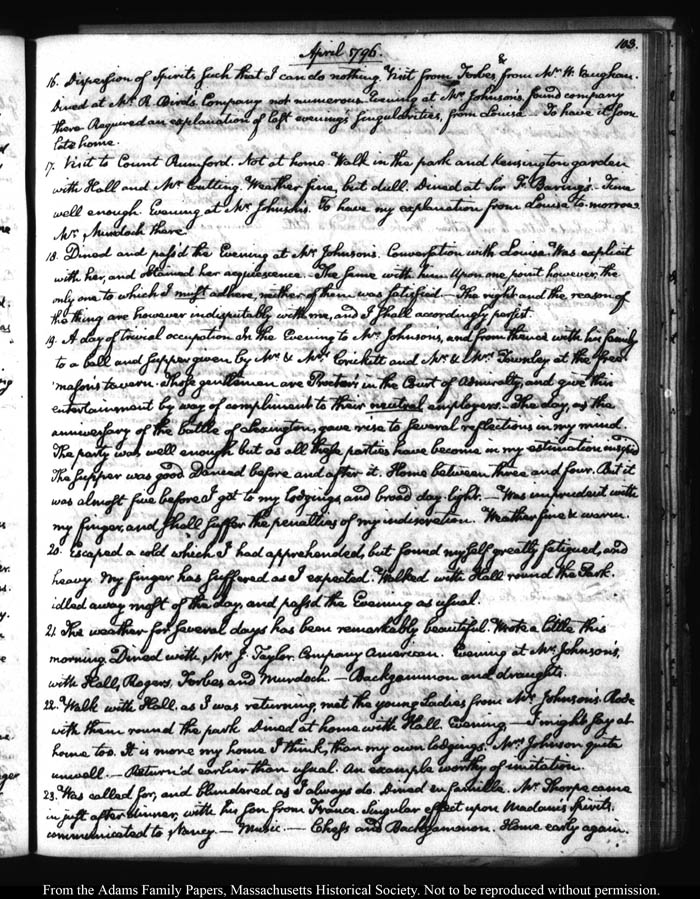 103.
April 1796.
16. Dispersion of Spirits such that I can do nothing. Visit from Forbes & from Mr. W. Vaughan.
Dined at Mr. R. Bird's. Company not numerous. Evening at Mr. Johnson's, found company
there. Required an explanation of last evening's singularities, from Louisa. To have it soon
late home.
17. Visit to Count Rumford. Not at home. Walk in the park and Kensington garden
with Hall and Mr. Cutting. Weather fine, but dull. Dined at Sir F. Baring's. Time
well enough. Evening at Mr. Johnson's. To have my explanation from Louisa to-morrow.
Mr. Murdoch there.
18. Dined and pass'd the Evening at Mr. Johnson's. Conversation with Louisa. Was explicit
with her, and obtained her acquiescence. The same with him. Upon one point however, the
only one to which I must adhere, neither of them was satisfied.—The right and the reason of
the thing are however indisputably with me, and I shall accordingly persist.
19. A day of trivial occupation. In the Evening to Mr. Johnson's, and from thence with his family
to a ball and supper given by Mr. & Mrs. Crickett and Mr. & Mrs. Townley at the free
mason's tavern. Those gentlemen are Proctors in the Court of Admiralty, and give this
entertainment by way of compliment to their neutral employers. The day, as the
anniversary of the battle of Lexington, gave rise to several reflections in my mind.
The party was well enough but as all these parties have become in my estimation insipid
The supper was good. Danced before and after it. Home between three and four. But it
was almost five before I got to my lodgings, and broad day-light.—Was imprudent with
my finger, and shall suffer the penalties of my indiscretion. Weather fine & warm.
20. Escaped a cold which I had apprehended, but found myself greatly fatigued, and
heavy. My finger has suffered as I expected. Walked with Hall round the Park.
idled away most of the day, and pass'd the Evening as usual.
21. The weather for several days has been remarkably beautiful. Wrote a little this
morning. Dined with Mr. J. Taylor. Company American. Evening at Mr. Johnson's,
with Hall, Rogers, Forbes and Murdoch.—Backgammon and draughts.
22. Walk with Hall. as I was returning, met the young Ladies from Mr. Johnson's. Rode
with them round the park. Dined at home with Hall. Evening—I might say at
home too. It is more my home I think, than my own lodgings. Mrs. Johnson quite
unwell.—Return'd earlier than usual. An example worthy of imitation.
23. Was called for, and blundered as I always do. Dined en famille. Mr. Thorpe came
in just after dinner, with his son from France. Singular effect upon Madam's spirits.
communicated to Nancy.—Music.—Chess and Backgammon. Home early again.
From the Adams Family Papers, Massachusetts Historical Society. Not to be reproduced without permission.